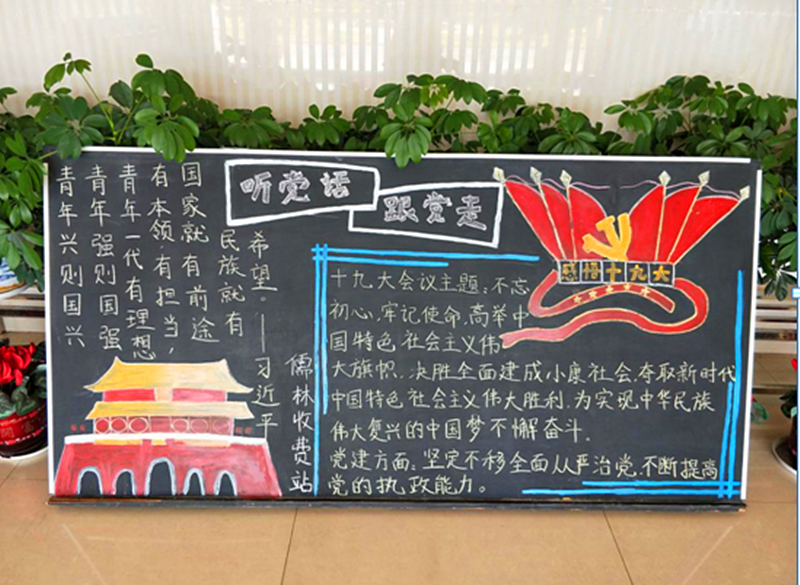 听党话
跟党走
青年兴则国兴
青年强则国强
青年一代有理想
有本领有担当，
国家就有前途
民族就有
希望。——习近平
儒林收费站
感悟十九大
十九大会议主题：不忘
初心，牢记使命，高举中
国特色社会主义伟
大旗帜、决胜全面建成小康社会，夺取新时代
中国特色社会主义伟大胜利，为实现中华民族
伟大复兴的中国梦不懈奋斗。
党建方面：坚定不移全面从严治党，不断提高
党的执政能力。